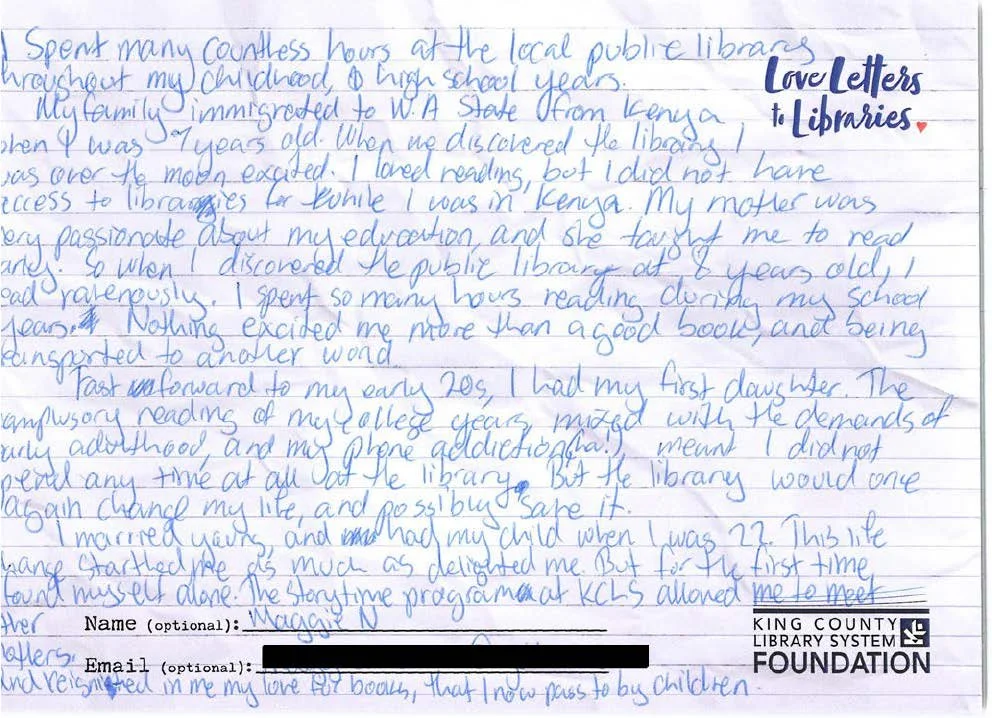 I Spent many countless hours at the local public library
hroughout my childhood, & high school years.
Love Letters
to Libraries.
My family immigrated to W.A State from Kenya
hen I was 7 years old. When we discovered the library I
as over the moon excited. I loved reading, but I did not have
ccess to libraries for while I was in Kenya. My mother was
ery passionate about my education, and she taught me to read
arley. So when I discovered the public library at 8 years old, I
ead ravenously. I spent so many hours reading during my school
years. Nothing excited me more than a good book, and being
ransported to another word
Fast forward to my early 20s, I had my first daughter. The
ompulsory reading of my college years, mixed with the demands of
arly adulthood, and my phone addiction (ha!), meant I did not
pend any time at all at the library. But the library would once
again change my life, and possibly safe it.
I married young, and had my child when I was 22. This life
hange startled me as much as delighted me. But for the first time
found myself alone. The Storytime program at KCLS allowed me to meet
ther
Name (optional): Maggie N
KING COUNTY
LIBRARY SYSTEM
FOUNDATION
Email (optional):
and reignited in me my love for books, that I now pass to by children.